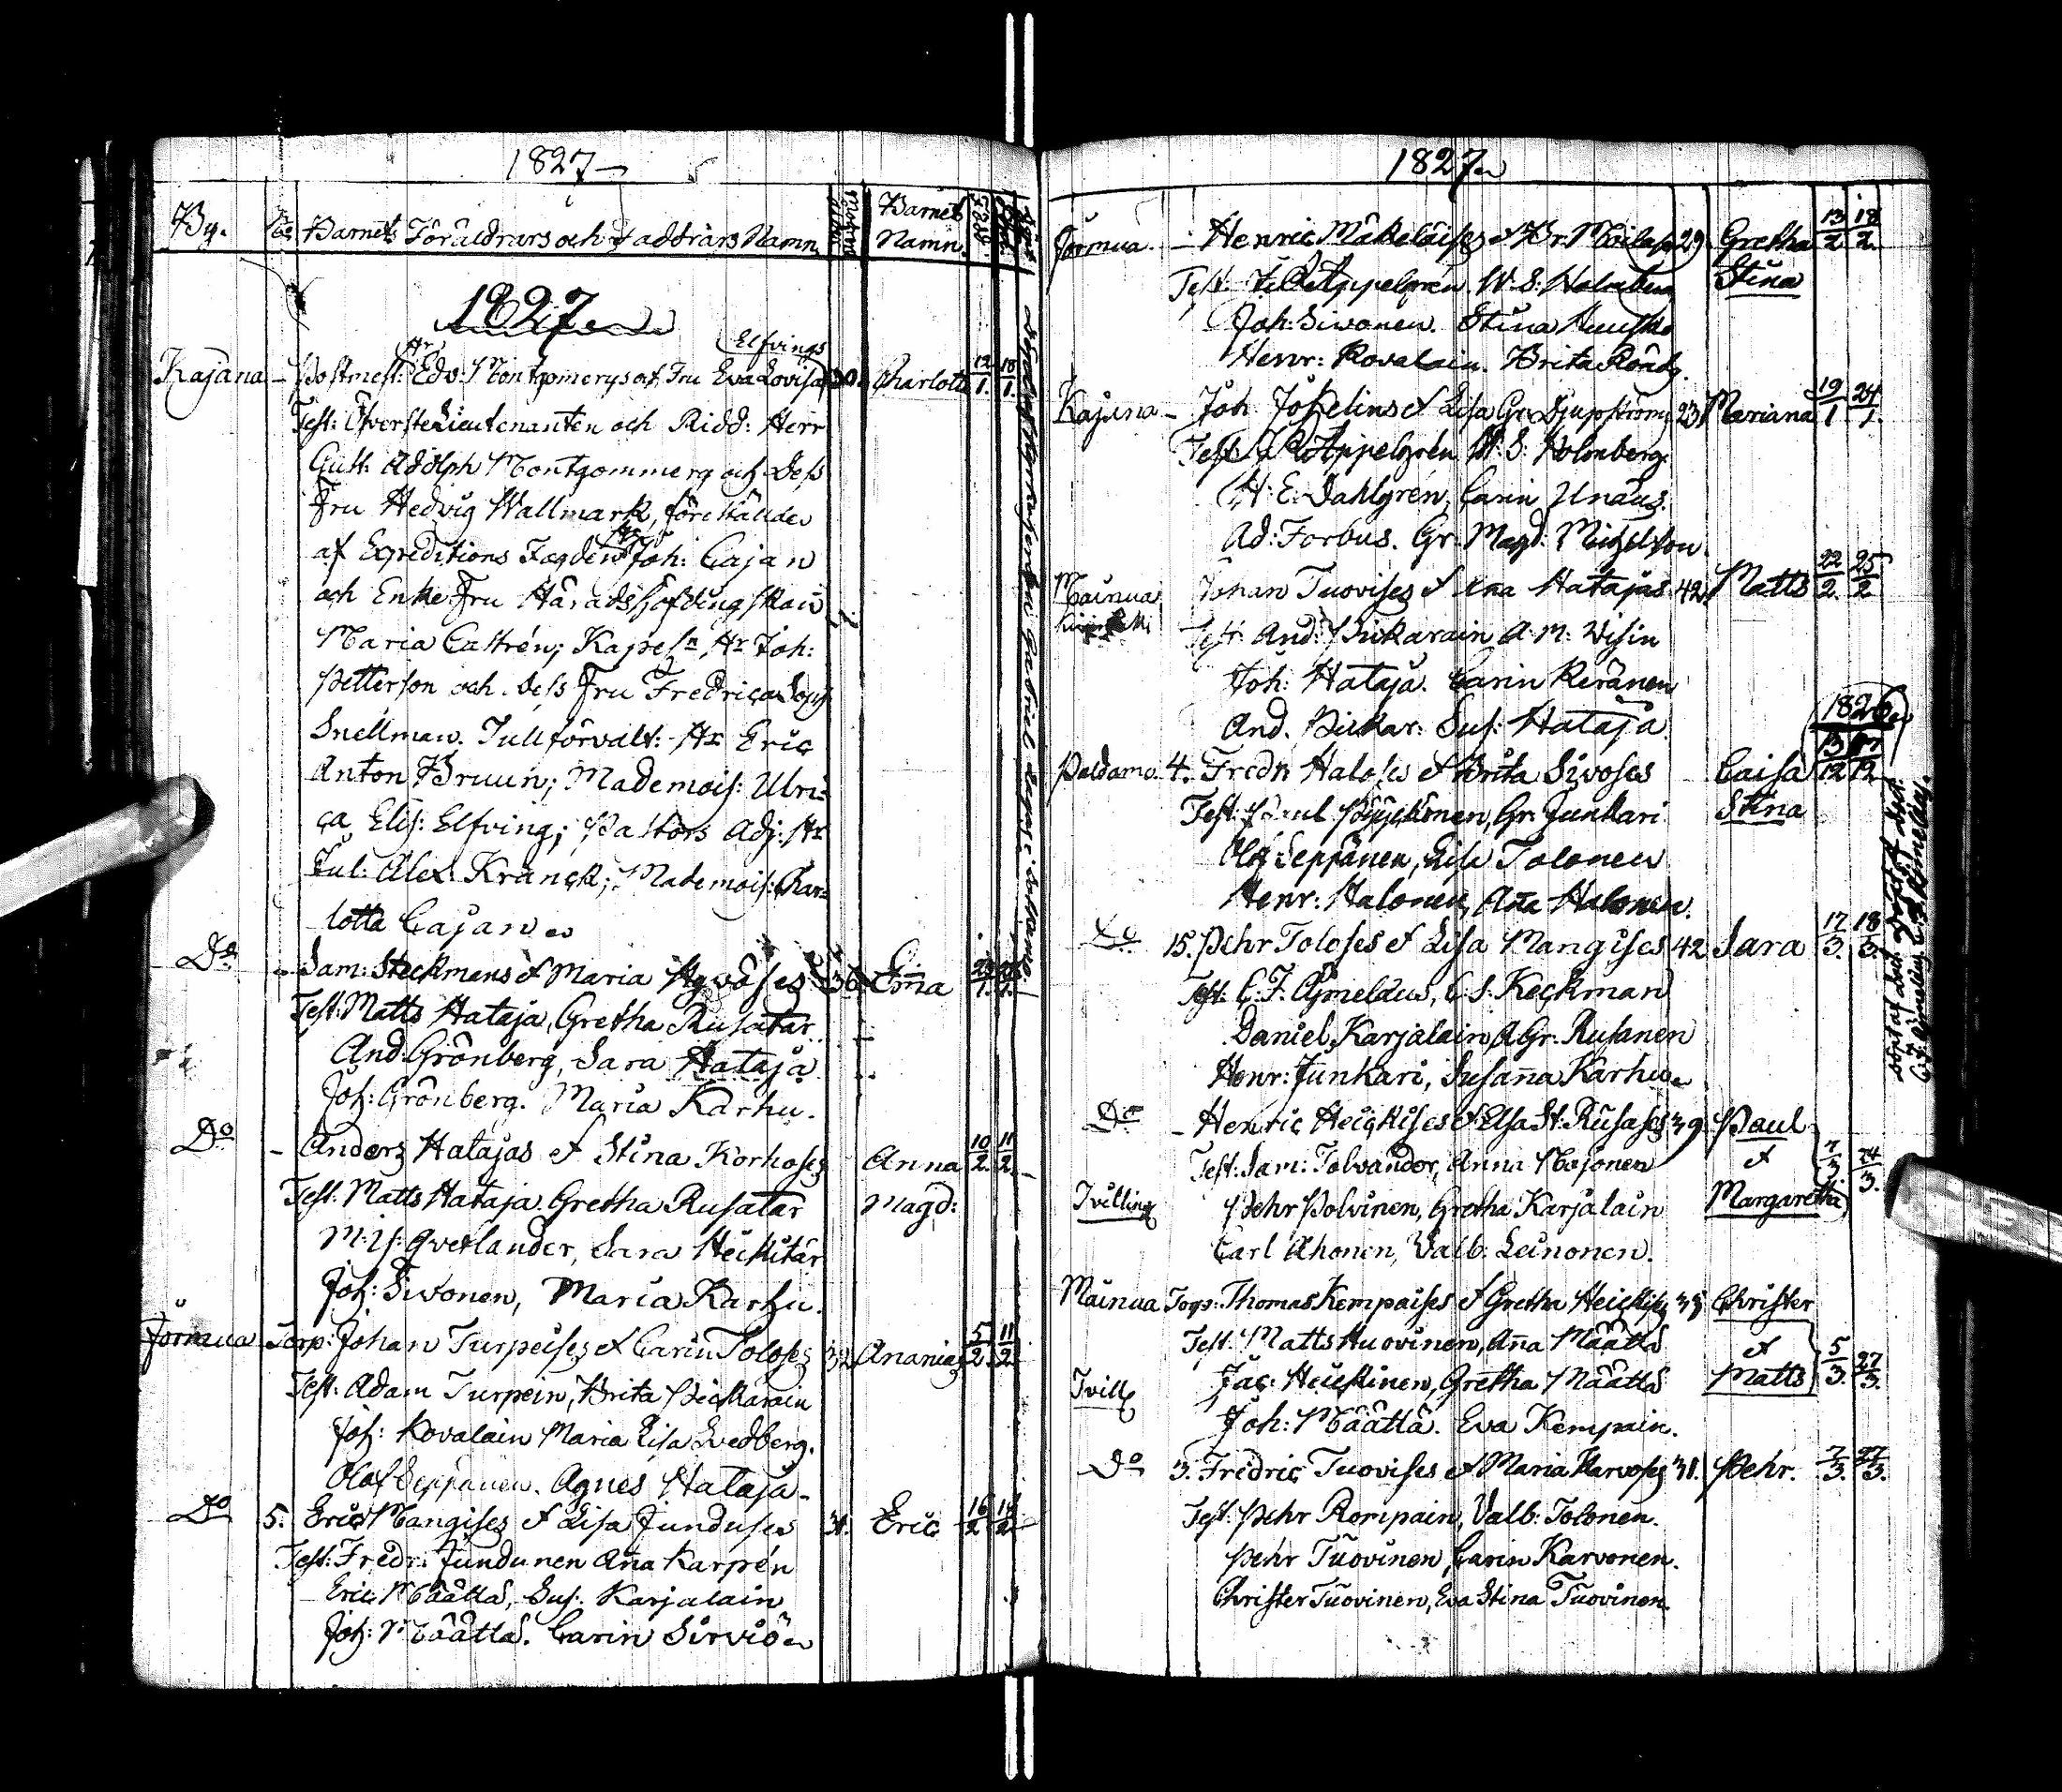 1827
By. No Barnets Föräldrars och Faddrars Namn. Modrens ålder Barnets Namn. född döpt
1827
Kajana - Postmest: Hr Edv: Montgomerys och Fru Eva Lovisa Elfvings 30. Charlotta 12/1. 18/1.
Test: Öfverste Lieutenanten och Ridd: Herr
Gust: Adolph Montgommery och Dess
Fru Hedvig Wallmark, förestälde
af Expeditions Fogden Hr Joh: Cajan
och Enke Fru Häradshöfdingskan
Maria Castrén; Kapelln Hr Joh:
Petterson och Dess Fru Fredrica Soph
Snellman. Tullförvalt: Hr Eric
Anton Bruun; Mademois: Ulri-
ca Elis: Elfving; Pastors Adj: Hr
Jul: Alex: Kranck; Mademois: Char-
lotta Cajan
Do - Sam: Steckmans et Maria Hyvöses 36 Emma
Test: Matts Hataja, Gretha Rusatar
And: Grönberg, Sara Hataja
Joh: Grönberg. Maria Karhu.
Do - Anders Hatajas et Stina Korhoses Anna 10/2. 11/2.
Test: Matts Hataja. Gretha Rusatar Magd:
Qvetlander, Sara Heikitär
Joh: Sivonen, Maria Karhu.
Jormua Torp: Johan Turpeises et Carin Toloses 32 Ananias 5/2. 11/2.
Test: Adam Turpein, Brita Pickarain
Joh: Kovalain Maria Lisa Svedberg.
Olof Seppänen. Agnes Hataja
Do 5. Eric Mangises et Lisa Junduses 31. Eric 16/2 18/2
Test: Fredr: Jundunen Anna Karpén
Eric Määttä, Sus: Karjalain
Joh: Määttä. Carin Sirviö
1827
Jormua. - Henric Mäkeläises et Br. Moilas 29 Gretha 13/2 18/2.
Test: Appelgrén W. S. Holmberg Stina
Joh: Sivonen. Stina
Henr: Kovalain. Brita
Kajana - Joh Joselins et Lisa Gr. Djupström 23 Mariana 19/1 24/1.
Test: Appelgrén W. S. Holmberg
H. E. Dahlgrén, Carin Unæus.
Ad: Forbus. Gr. Magd: Michelson
Mainua Johan Tuovises et Anna Hatajas 42. Matts 22/2. 25/2
Test: And: Pickarain A. M. Visin
Joh: Hataja. Carin Keränen
And. Pickar: Sus: Hataja
1826
Paldamo 4. Fredr Haloses et Brita Sivoses Caisa 13/12 17/12
Test: Paul Pyykönen, Gr. Junkari Stina
Olof Seppänen, Lisa Tolonen
Henr: Halonen, Anna Halonen.
Do 15. Pehr Toloses et Lisa Mangises 42 Sara 17/3. 18/3.
Test: C. F. Ajmelæus, C. S. Keckman
Daniel Karjalain, A Gr. Rusanen
Henr: Junkari, Susanna Karhu
Do - Henric Heickises et Elsa St. Rusases 39. Paul
Test: Sam: Tolvander, Anna Mojonen et 7/3. 24/3.
Tvilling Pehr Polvinen, Gretha Karjalain Margaretha
Carl Ahonen, Valb: Leinonen.
Mainua Torp: Thomas Kempaises et Gretha Heickises Christer
Test: Matts Huovinen, Anna Määttä et 5/3. 27/3.
Tvill Jac: Heickinen, Gretha Määttä Matts
Joh: Määttä. Eva Kempain.
Do 3. Fredric Tuovises et Maria Karvoses 31. Pehr. 7/3. 27/3.
Test: Pehr Rompain, Valb: Tolonen.
Pehr Tuovinen, Carin Karvonen.
Christer Tuovinen, Eva Stina Tuovinen.